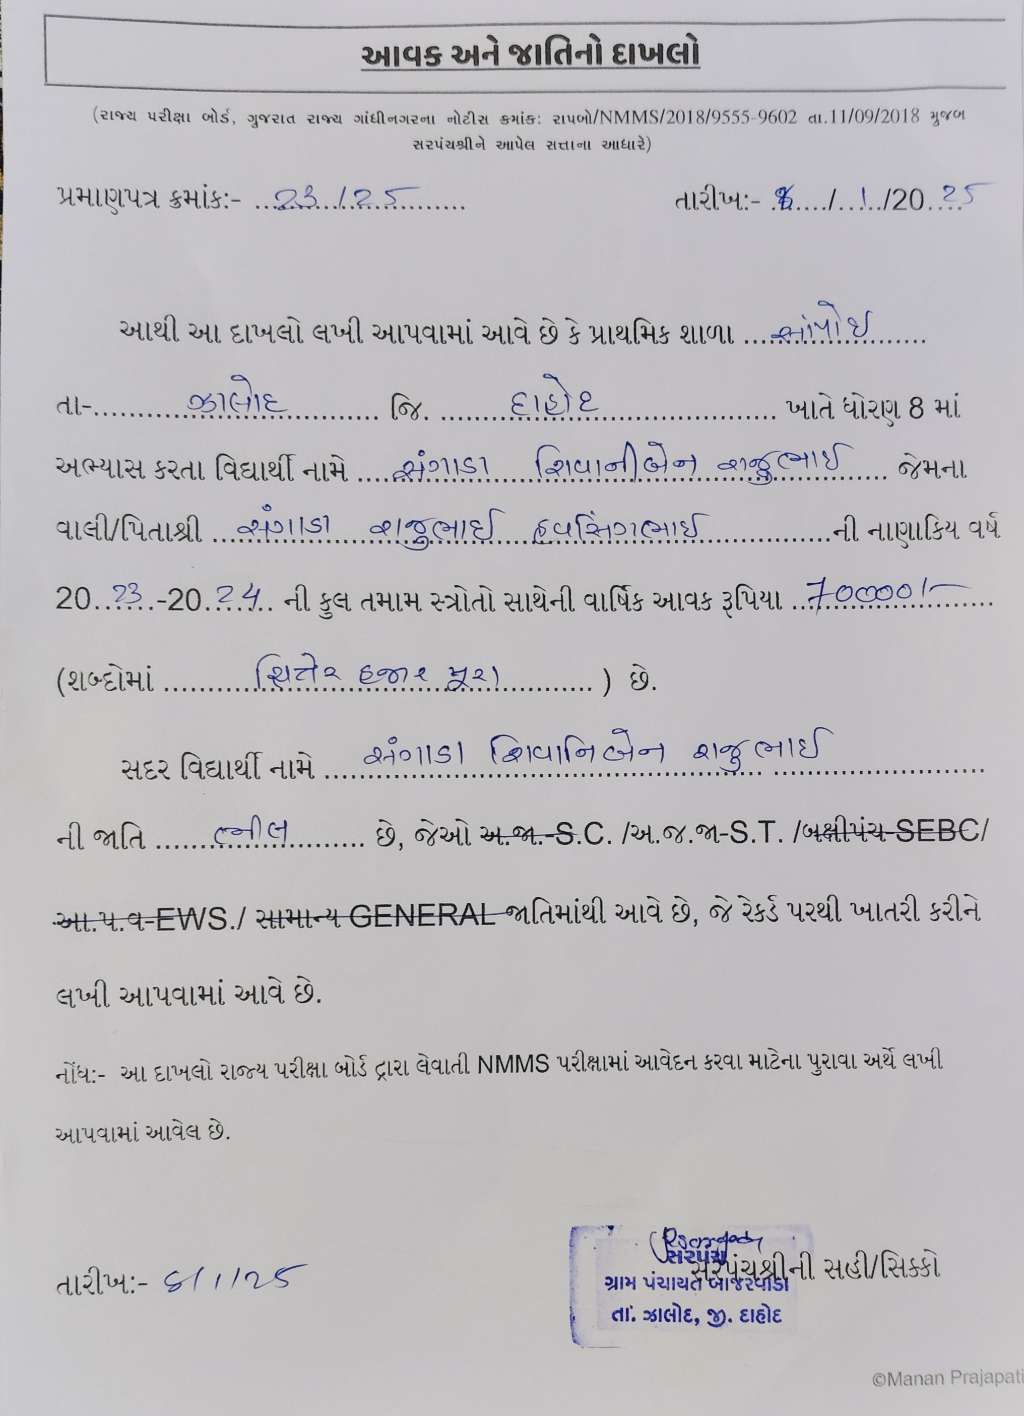 આવક અને જાતિનો દાખલો
(રાજ્ય પરીક્ષા બોર્ડ, ગુજરાત રાજ્ય ગાંધીનગરના નોટીસ ક્રમાંક: રાપબો/NMMS/2018/9555-9602 તા.11/09/2018 મુજબ
સરપંચશ્રીને આપેલ સત્તાના આધારે)
પ્રમાણપત્ર ક્રમાંક:- ..23../25.................... તારીખ:- .8..../..1../20..25
આથી આ દાખલો લખી આપવામાં આવે છે કે પ્રાથમિક શાળા ....................
તા-............ઝાલોદ............ જિ. ............દાહોદ............ ખાતે ધોરણ 8 માં
અભ્યાસ કરતા વિદ્યાર્થી નામે ....સંગાડા શિવાનીબેન રાજુભાઈ.... જેમના
વાલી/પિતાશ્રી ...સંગાડા રાજુભાઈ હવસિંગભાઈ............ની નાણાકિય વર્ષ
20..23..-20..24.. ની કુલ તમામ સ્ત્રોતો સાથેની વાર્ષિક આવક રૂપિયા ..70000/-......
(શબ્દોમાં ............સિત્તેર હજાર પૂરા............ ) છે.
સદર વિદ્યાર્થી નામે ....સંગાડા શિવાનિબેન રાજુભાઈ............
ની જાતિ .......ભીલ......... છે, જેઓ અ.જા.-S.C. /અ.જ.જા-S.T. /બક્ષીપંચ-SEBC/
આ.પ.વ-EWS./ સામાન્ય GENERAL જાતિમાંથી આવે છે, જે રેકર્ડ પરથી ખાતરી કરીને
લખી આપવામાં આવે છે.
નોંધ:- આ દાખલો રાજ્ય પરીક્ષા બોર્ડ દ્વારા લેવાતી NMMS પરીક્ષામાં આવેદન કરવા માટેના પુરાવા અર્થે લખી
આપવામાં આવેલ છે.
સરપંચ
તારીખ:- 8/1/25 સરપંચશ્રીની સહી/સિક્કો
ગ્રામ પંચાયત બાજરવાડા
તા. ઝાલોદ, જી. દાહોદ
©Manan Prajapati